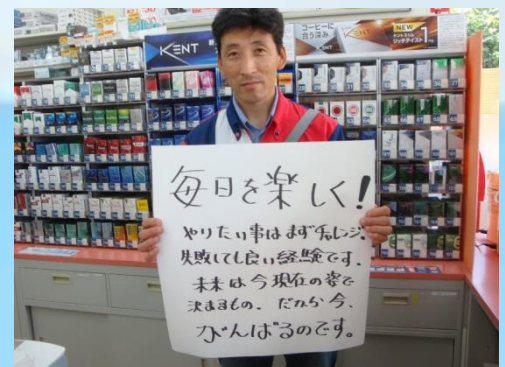 KENT
コーヒーに
合う深み。
KENT
NEW
毎日を楽しく!
やりたい事はまずチャレンジ。
失敗しても良い経験です。
未来は今現在の姿で
決まるもの、だから今、
がんばるのです。